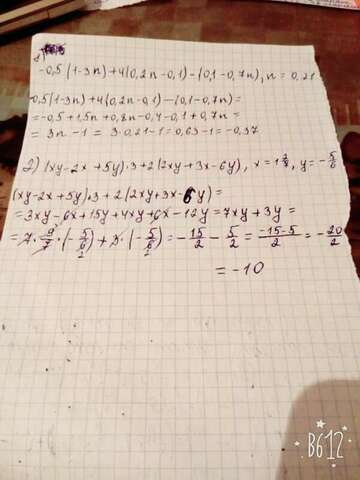 1)
-0,5(1-3n)+4(0,2n-0,1)-(0,1-0,7n), n=0,21
-0,5(1-3n)+4(0,2n-0,1)-(0,1-0,7n)=
=-0,5+1,5n+0,8n-0,4-0,1+0,7n=
=3n-1=3·0,21-1=0,63-1=-0,37
2) (xy-2x+5y)·3+2(2xy+3x-6y), x=1 2/7, y=-5/6
(xy-2x+5y)·3+2(2xy+3x-6y)=
=3xy-6x+15y+4xy+6x-12y=7xy+3y=
=7·9/7·(-5/6)+3·(-5/6)=-15/2-5/2=(-15-5)/2=-20/2
=-10
B612